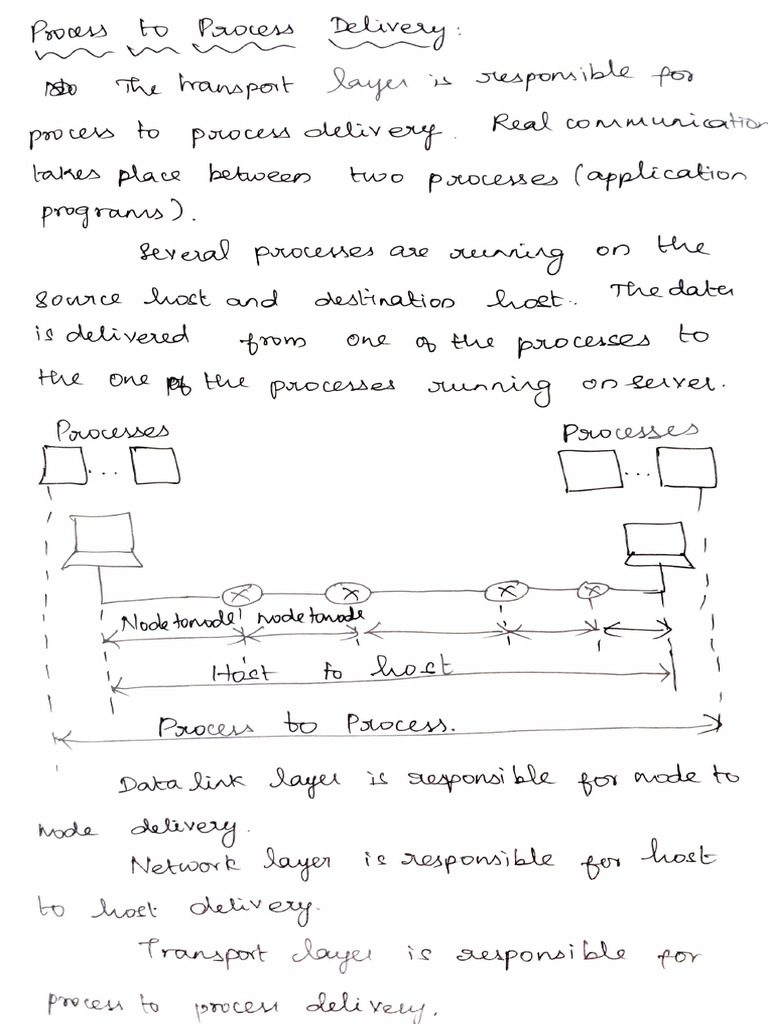 Process to Process Delivery:
The transport layer is responsible for
process to process delivery. Real communication
takes place between two processes (application
programs).
Several processes are running on the
source host and destination host. The data
is delivered from one of the processes to
the one of the processes running on server.
Processes Processes
... ...
Node to node node to node
Host to host
Process to Process.
Data link layer is responsible for node to
node delivery.
Network layer is responsible for host
to host delivery.
Transport layer is responsible for
process to process delivery.